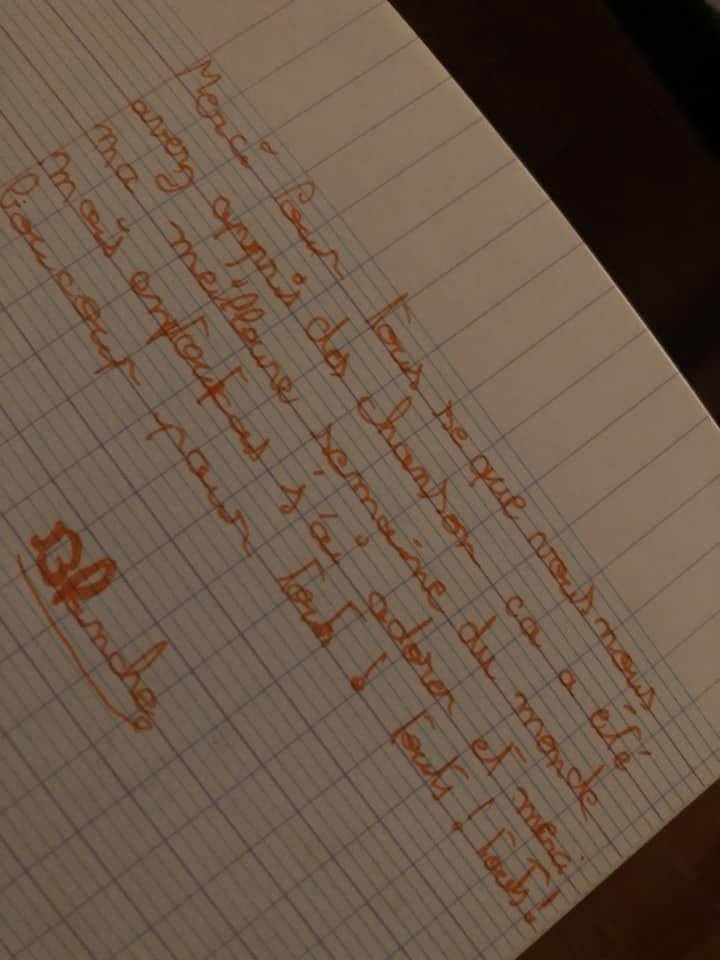 Merci Pour Tous se que vous nous
avez appris des chanson ca a été
ma meilleure semaine du monde
mais entoutcas s'ái adorer et merci
bioucoup pour tout ! touts ! touts !
Blanche